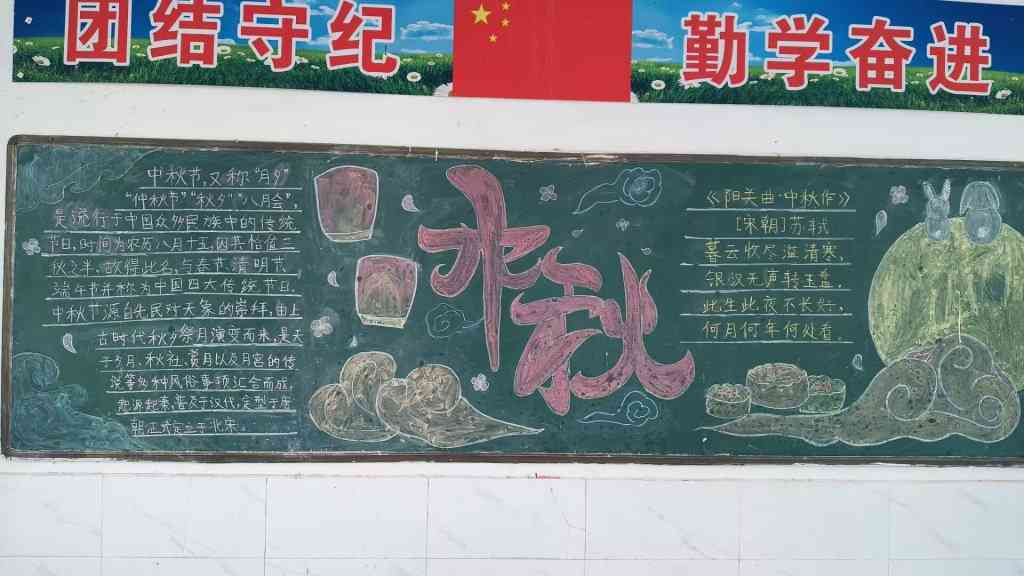 团结守纪
勤学奋进
中秋节,又称“月夕”
“仲秋节”“秋夕”“八月会”,
是流行于中国众多民族中的传统
节日,时间为农历八月十五,因其恰值三
秋之半,故得此名,与春节清明节
端午节并称为中国四大传统节日,
中秋节源自先民对天象的崇拜,由上
古时代秋夕祭月演变而来,是关
于夕月、秋社、赏月以及月宫的传
说等多种风俗事项汇合而成,
起源起秦,普及于汉代,定型于唐
朝正式定立于北宋。
中秋
《阳关曲·中秋作》
[宋朝]苏轼
暮云收尽溢清寒,
银汉无声转玉盘,
此生此夜不长好,
何月何年何处看。